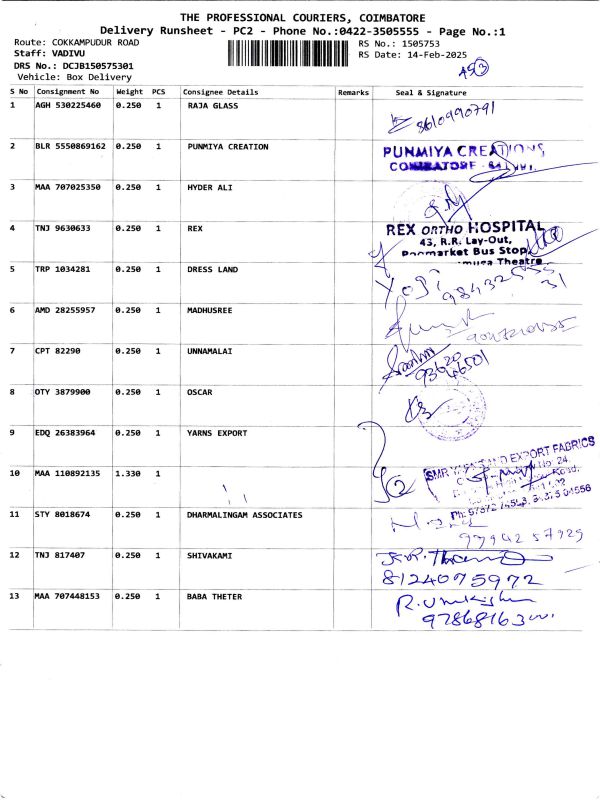 THE PROFESSIONAL COURIERS, COIMBATORE
Delivery Runsheet - PC2 - Phone No.:0422-3505555 - Page No.:1
Route: COKKAMPUDUR ROAD
RS No.: 1505753
Staff: VADIVU
RS Date: 14-Feb-2025
DRS No.: DCJB150575301
Vehicle: Box Delivery
S No Consignment No Weight PCS Consignee Details Remarks Seal & Signature
1 AGH 530225460 0.250 1 RAJA GLASS
8610990791
2 BLR 5550869162 0.250 1 PUNMIYA CREATION
PUNMIYA CREATIONS
COIMBATORE
3 MAA 707025350 0.250 1 HYDER ALI
4 TNJ 9630633 0.250 1 REX
REX ORTHO HOSPITAL
43, R.R. Lay-Out,
Poomarket Bus Stop,
Theatre
5 TRP 1034281 0.250 1 DRESS LAND
6 AMD 28255957 0.250 1 MADHUSREE
7 CPT 82290 0.250 1 UNNAMALAI
8 OTY 3879900 0.250 1 OSCAR
9 EDQ 26383964 0.250 1 YARNS EXPORT
SMR AND EXPORT FABRICS
No. 24,
Road,
10 MAA 110892135 1.330 1
11 STY 8018674 0.250 1 DHARMALINGAM ASSOCIATES
12 TNJ 817407 0.250 1 SHIVAKAMI
8124075972
13 MAA 707448153 0.250 1 BABA THETER